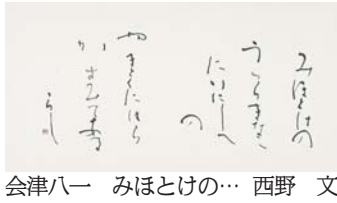 みほとけの
うつらまなこ
にいにしへ
の
やまとくにはら
かすみてある
らし
会津八一　みほとけの… 西野　文